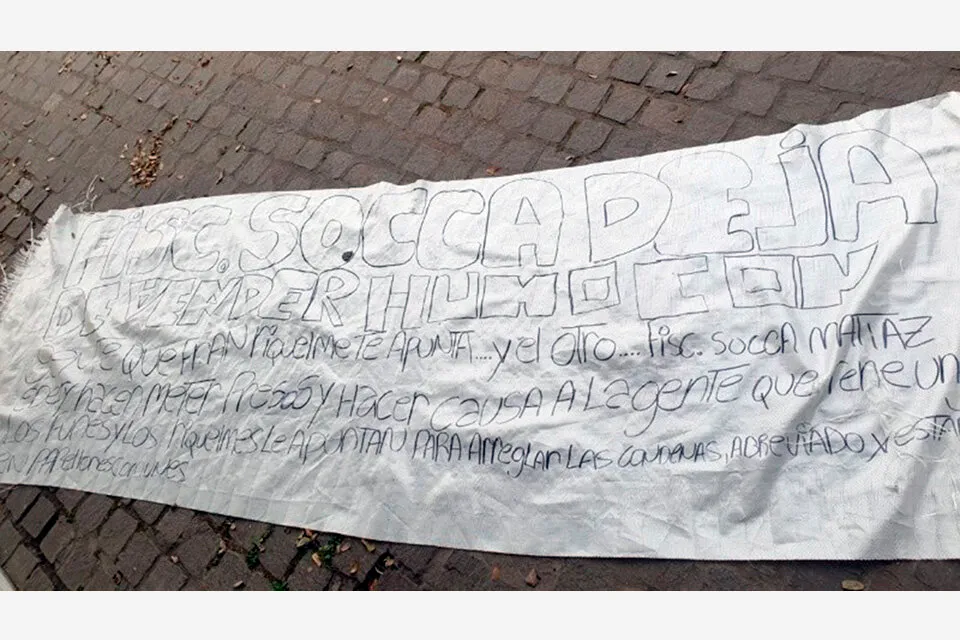 FISC. SOCCA DEJA
DE VENDER HUMO CON
QUE FRAN RIQUELME TE APUNTA....y el OTRO.... Fisc. SOCCA MATIAZ
HACER METER PRESO Y HACER CAUSA A LA GENTE QUE TIENE UN
LOS FUNES Y LOS RIQUELMES LE APUNTAN PARA ARREGLAR LAS CONDENAS, ABREVIADO Y ESTAR
EN PABELLONES COMUNES